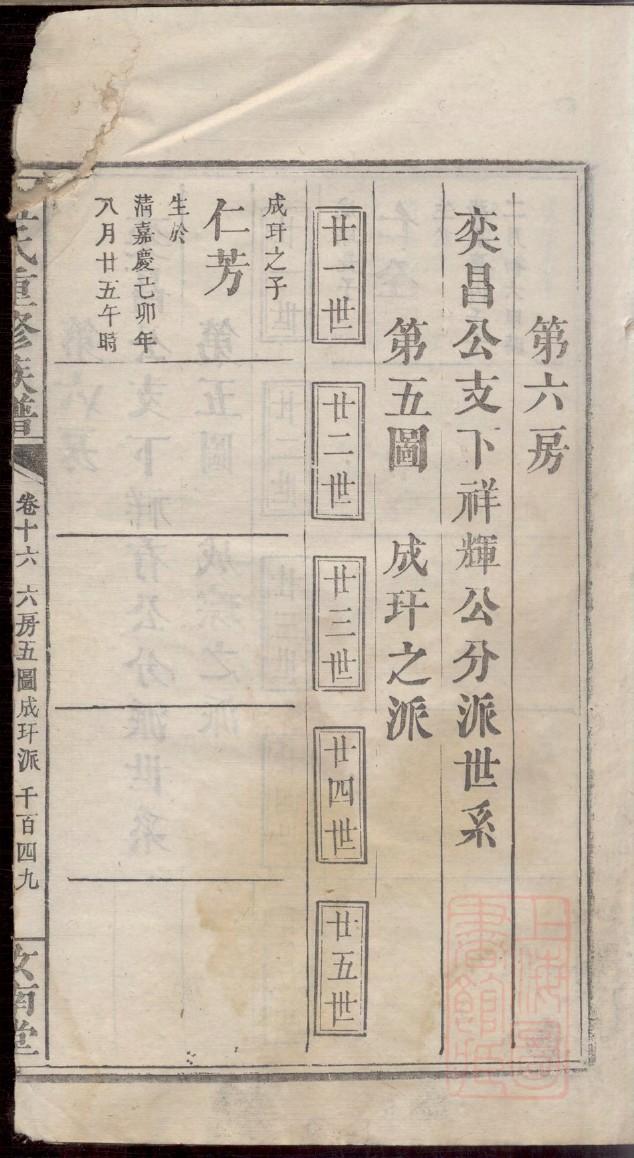 第六房
奕昌公支下祥輝公分派世系
第五圖 成玕之派
廿一世
廿二世
廿三世
廿四世
廿五世
成玕之子
仁芳
生於
清嘉慶己卯年
八月廿五午時
氏重修族譜
卷十六 六房五圖成玕派 千百四九
文南堂